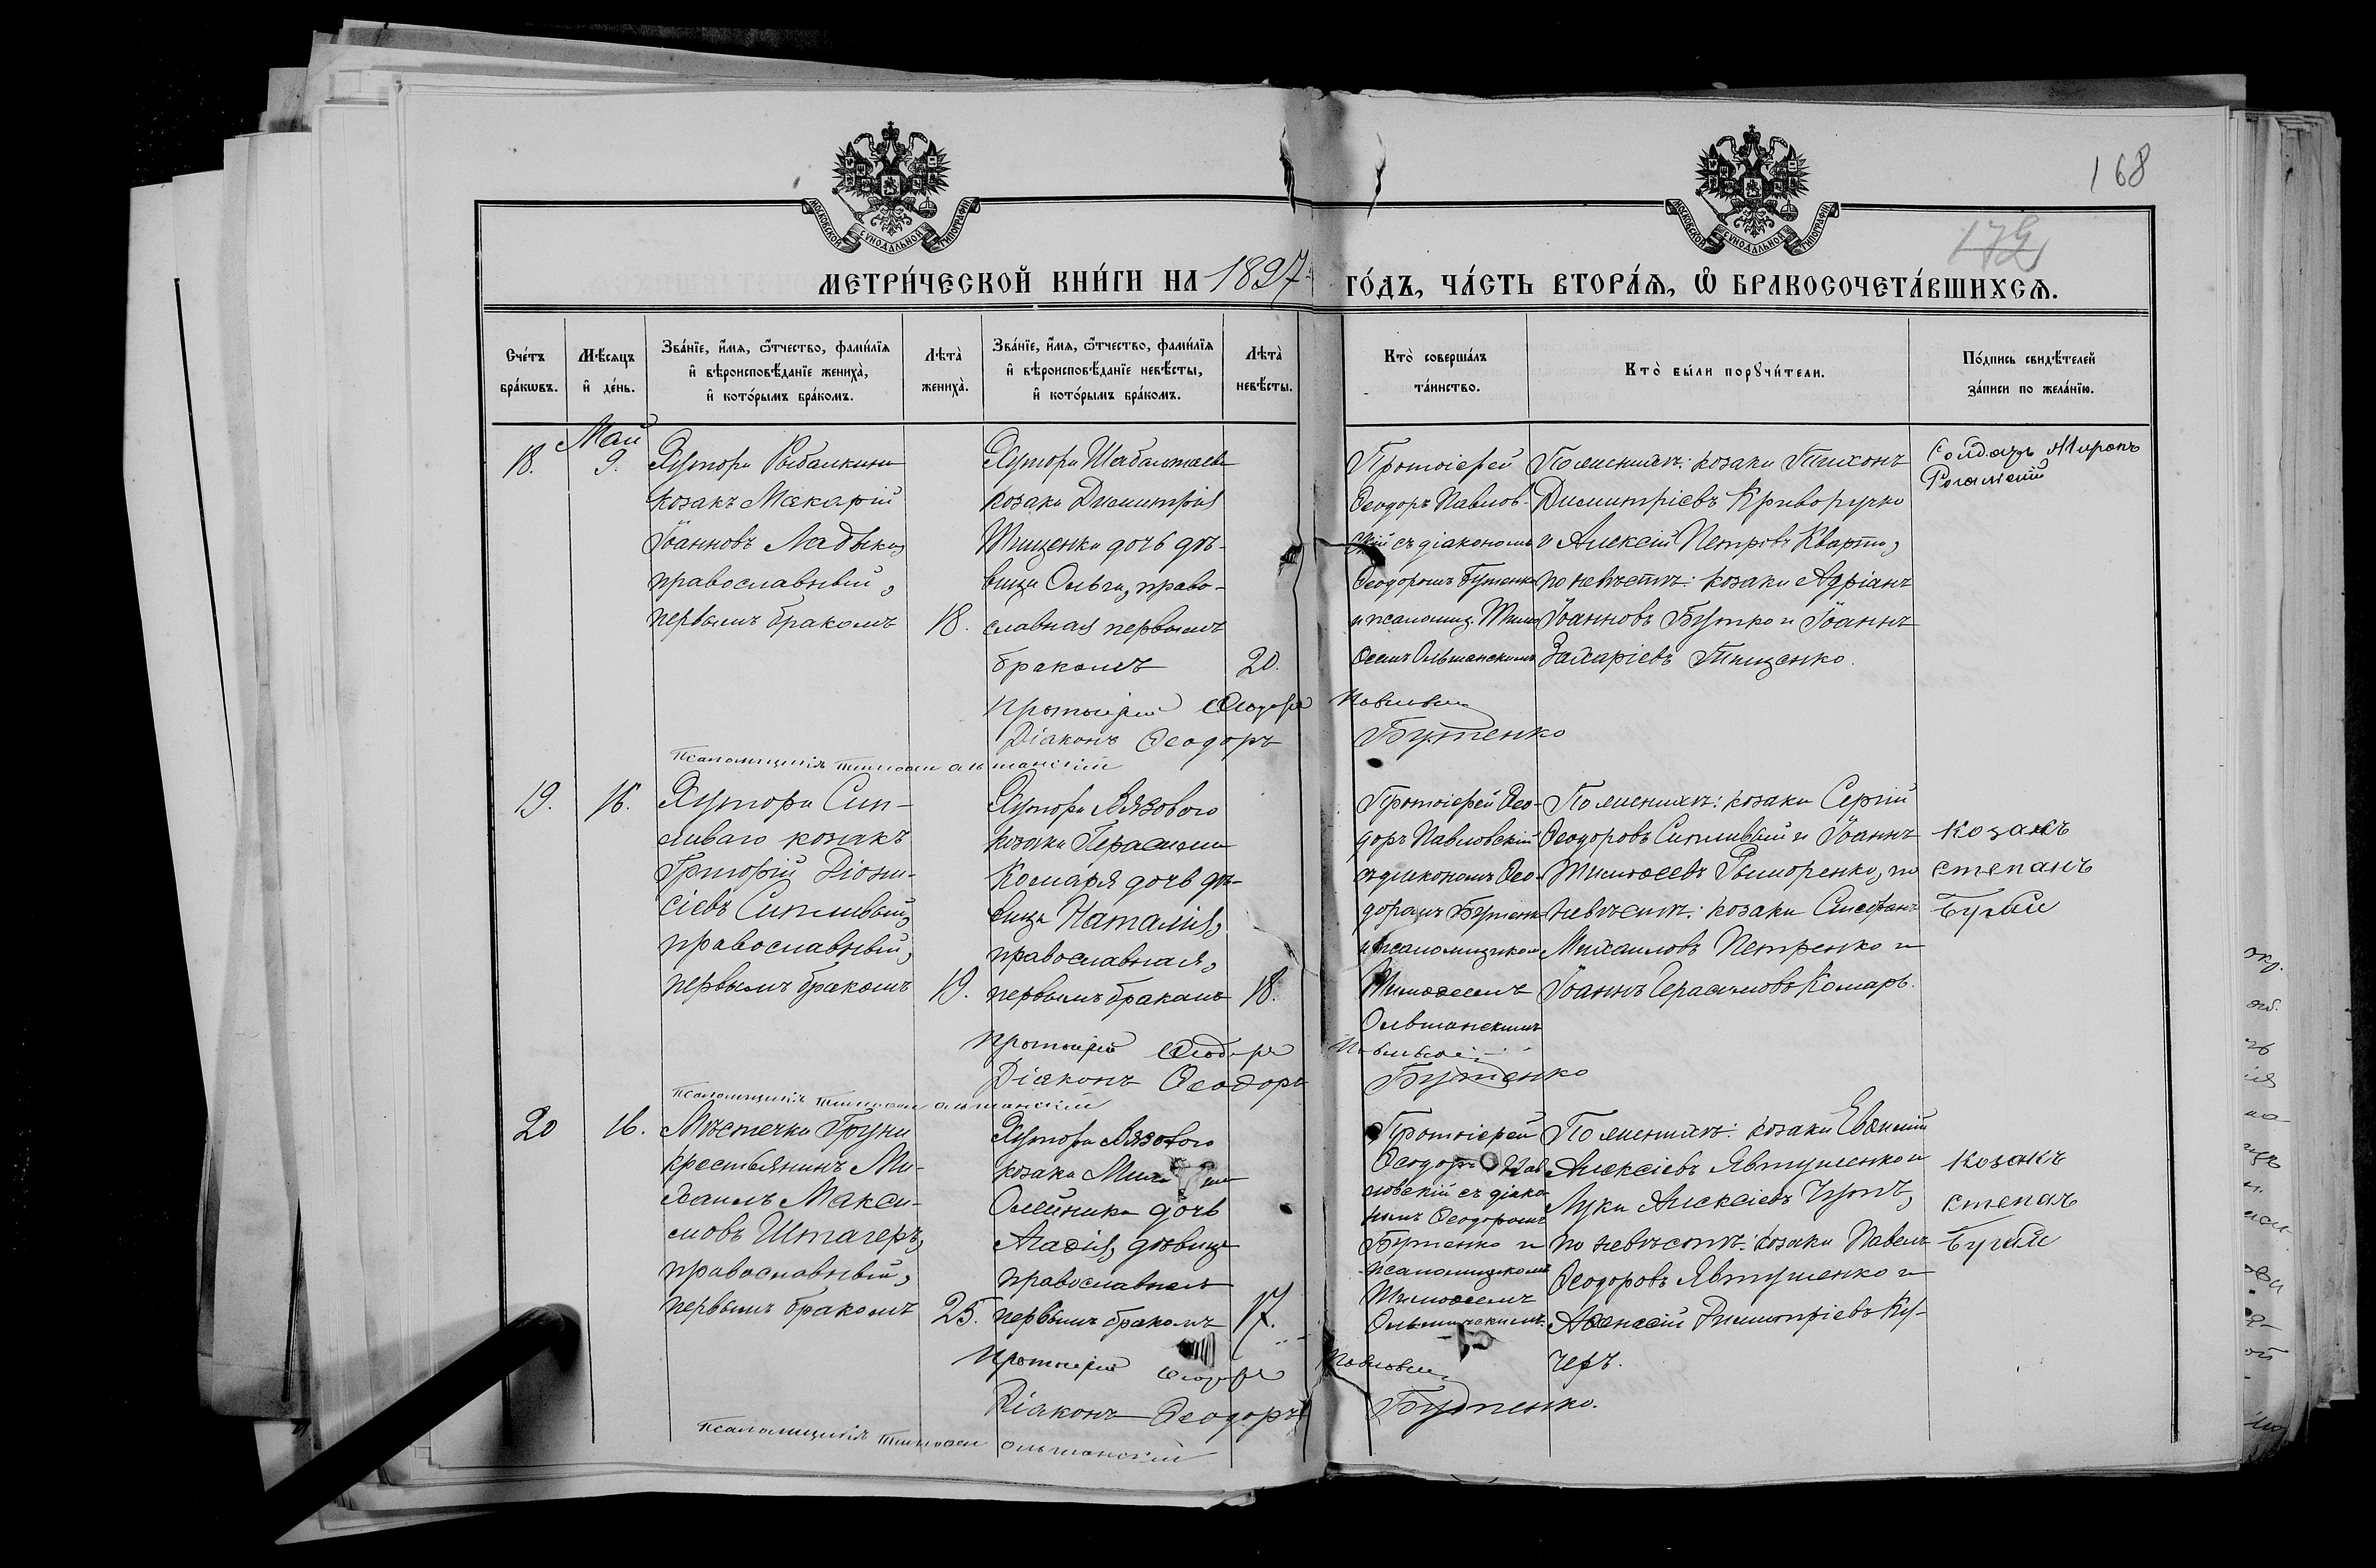 168
МОСКОВСКОЙ СУНОДАЛЬНОЙ ТИПОГРАФІИ
МОСКОВСКОЙ СУНОДАЛЬНОЙ ТИПОГРАФІИ
МЕТРИ́ЧЕСКОЙ КНИ́ГИ НА 1897 ГО́ДЪ, ЧА́СТЬ ВТОРА́Ѧ, Ѽ БРАКОСОЧЕТА́ВШИХСѦ.
Сче́тъ бра́кѡвъ.
Мѣ́сѧцъ и҆ де́нь.
Зва́нїе, и҆́мѧ, ѻ҆́тчество, фамі́лїѧ
и҆ вѣроисповѣ́данїе жениха̀,
и҆ кото́рымъ бра́комъ.
Лѣта̀ жениха̀.
Зва́нїе, и҆́мѧ, ѻ҆́тчество, фамі́лїѧ
и҆ вѣроисповѣ́данїе невѣ́сты,
и҆ кото́рымъ бра́комъ.
Лѣта̀ невѣ́сты.
Кто̀ соверша́лъ та́инство.
Кто̀ бы́ли порꙋчи́тели.
По́дпись свидѣ́телей за́писи по жела́нїю.
18.
Май
9.
Хутора Рыбалкина
козакъ Макарій
Іоанновъ Ладыка,
православный,
первымъ бракомъ
18.
Хутора
козака Димитрія
Тищенка дочь дѣ-
вица Ольга, право-
славная первымъ
бракомъ
20.
Протоіерей
Ѳеодоръ Павлов-
скій съ діакономъ
Ѳеодоромъ Бутенко
и псаломщ. Тимо
ѳеемъ Ольшанскимъ
По женихѣ: козаки Тихонъ
Димитріевъ Криворучко
и Алексій Петровъ Кварта,
по невѣстѣ: козаки Адріанъ
Іоанновъ Бутко и Іоаннъ
Захаріевъ Тищенко.
Солдатъ Миронъ
Протоіерей Ѳеодоръ Павловскій
Діаконъ Ѳеодоръ Бутенко
Псаломщикъ Тимоѳей Ольшанскій
19.
16.
Хутора Сип-
ливаго козакъ
Григорій Діони-
сіевъ Сипливый,
православный,
первымъ бракомъ
19.
Хутора Вязового
козака Герасима
Комаря дочь дѣ-
вица Наталія,
православная,
первымъ бракомъ
18.
Протоіерей Ѳео-
доръ Павловскій
съ діакономъ Ѳео-
доромъ Бутенко
и псаломщикомъ
Тимоѳеемъ
Ольшанскимъ
По женихѣ: козаки Сергій
Ѳеодоровъ Сипливый и Іоаннъ
Тимоѳеевъ Рыморенко, по
невѣстѣ: козаки Стефанъ
Михаиловъ Петренко и
Іоаннъ Герасимовъ Комаръ.
Козакъ
степанъ
Бугай
Протоіерей Ѳеодоръ Павловскій
Діаконъ Ѳеодоръ Бутенко
Псаломщикъ Тимоѳей Ольшанскій
20
16.
Мѣстечка Груни
крестьянинъ Ми-
хаилъ Макси-
мовъ Штагеръ,
православный,
первымъ бракомъ
25.
Хутора Вязового
козака
Олейника дочь
Агаѳія, дѣвица
православная
первымъ бракомъ
17.
Протоіерей
Ѳеодоръ Пав
ловскій съ діако
номъ Ѳеодоромъ
Бутенко и
псаломщикомъ
Тимоѳеемъ
Ольшанскимъ.
По женихѣ: козаки Евѳимій
Алексіевъ Явтушенко и
Лука Алексіевъ
по невѣстѣ: козаки Павелъ
Ѳеодоровъ Явтушенко и
Аѳанасій Димитріевъ Ку-
черъ.
Козакъ
степанъ
Бугай
Протоіерей Ѳеодоръ Павловскій
Діаконъ Ѳеодоръ Бутенко.
Псаломщикъ Тимоѳей Ольшанскій